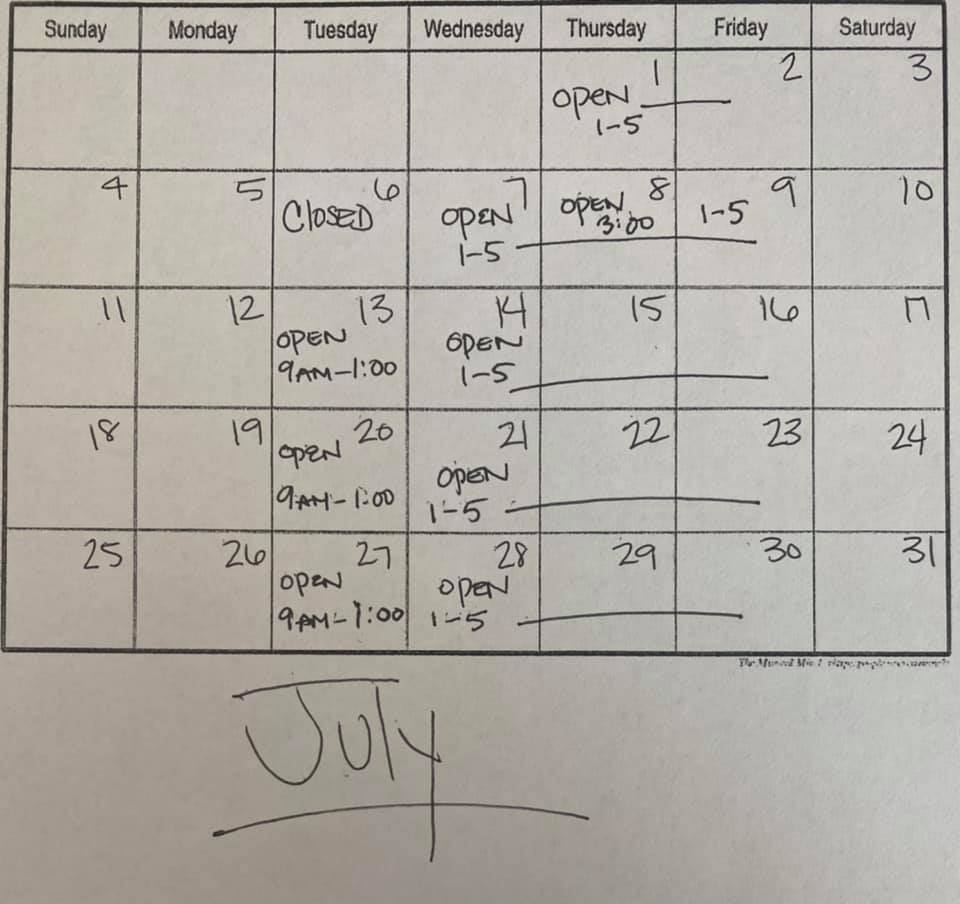 Sunday Monday Tuesday Wednesday Thursday Friday Saturday
1 2 3
OPEN
1-5
4 5 6 7 8 9 10
CLOSED OPEN OPEN 1-5
1-5 3:00
11 12 13 14 15 16 17
OPEN OPEN
9AM-1:00 1-5
18 19 20 21 22 23 24
OPEN OPEN
9AM-1:00 1-5
25 26 27 28 29 30 31
OPEN OPEN
9AM-1:00 1-5
July